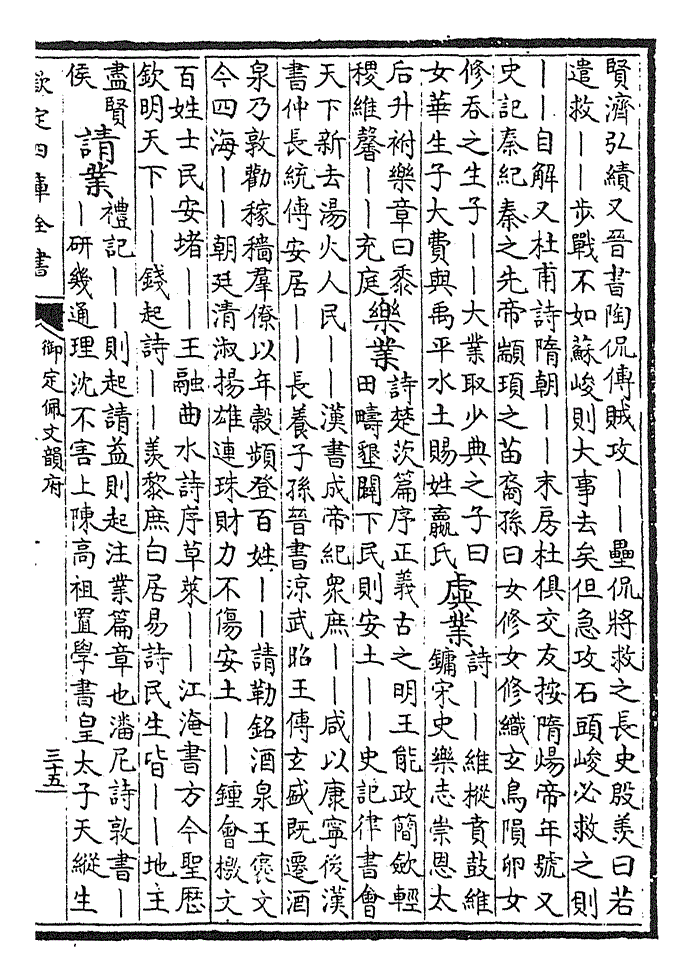 賢濟弘績又晉書陶侃傳賊攻丨丨壘侃將救之長史殷羡曰若
遣救丨丨步戰不如蘇峻則大事去矣但急攻石頭峻必救之則
丨丨自解又杜甫詩隋朝丨丨末房杜俱交友按隋煬帝年號又
史記秦紀秦之先帝顓頊之苗裔孫曰女修女修織玄鳥隕卵女
修吞之生子丨丨大業取少典之子曰
女華生子大費與禹平水土賜姓嬴氏
虡業
詩丨丨維樅賁鼓維
鏞宋史樂志崇恩太
后升祔樂章曰黍
稷維馨丨丨充庭
樂業
詩楚茨篇序正義古之明王能政簡歛輕
田疇墾闢下民則安土丨丨史記律書會
天下新去湯火人民丨丨漢書成帝紀衆庶丨丨咸以康寧後漢
書仲長統傳安居丨丨長養子孫晉書涼武昭王傳玄盛既遷酒
泉乃敦勸稼穡羣僚以年穀頻登百姓丨丨請勒銘酒泉王褒文
今四海丨丨朝廷清淑揚雄連珠財力不傷安土丨丨鍾會檄文
百姓士民安堵丨丨王融曲水詩序草萊丨丨江淹書方今聖厯
欽明天下丨丨錢起詩丨丨羨黎庶白居易詩民生皆丨丨地主
盡賢
侯
請業
禮記丨丨則起請益則起注業篇章也潘尼詩敦書丨
丨研幾通理沈不害上陳高祖置學書皇太子天縱生
欽定四庫全書
御定佩文韻府
三十五